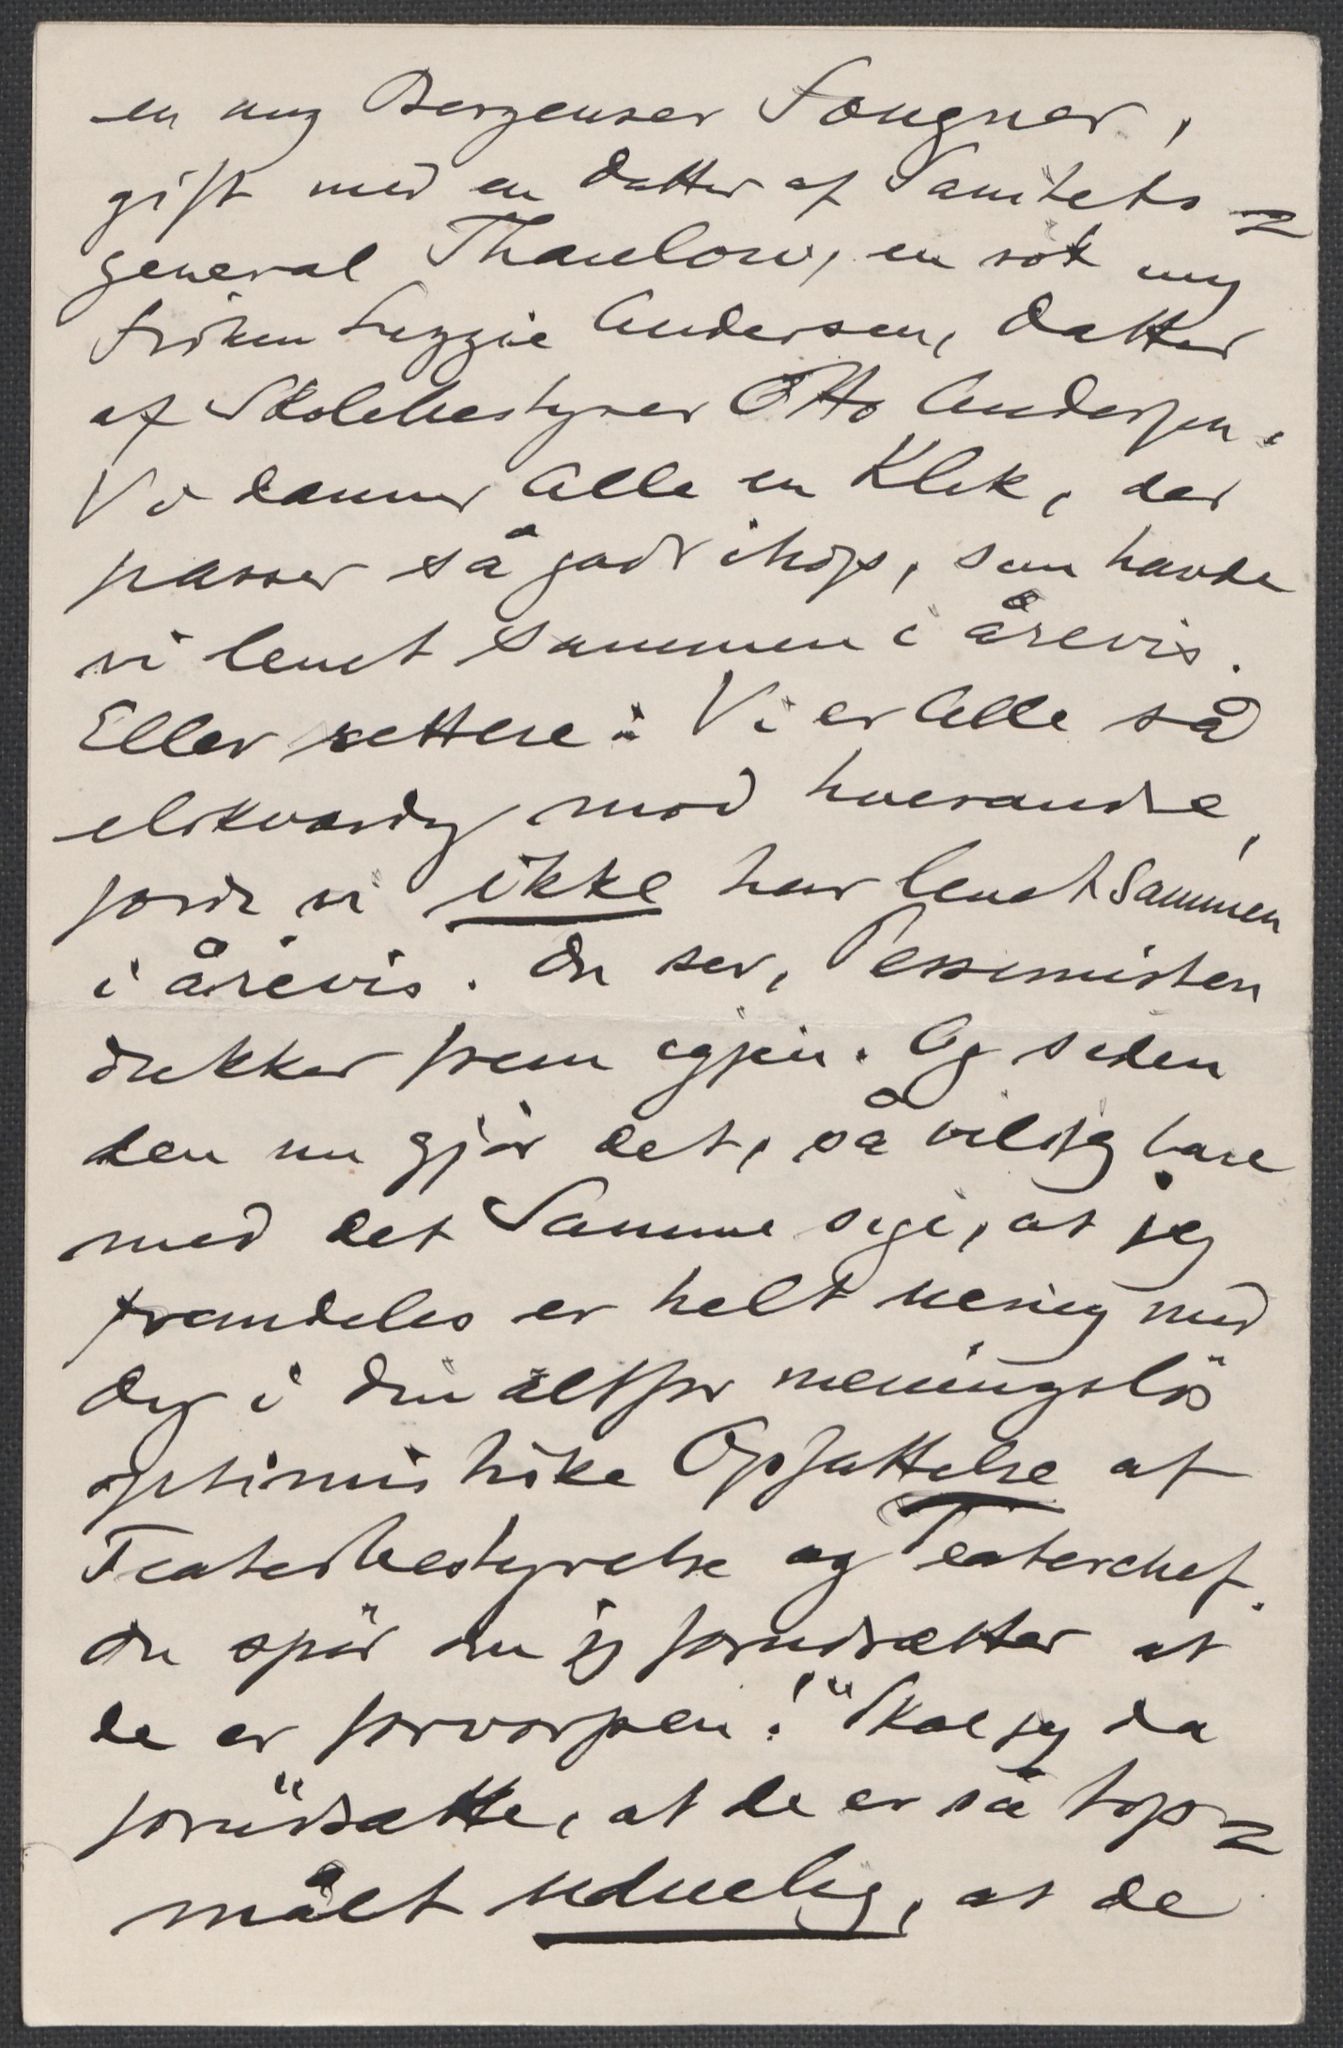 en ung Bergenser Fougner,
gift med en Datter af Sanitets=
general Thaulow, en söt ung
Fröken Lizzie Andersen, Datter
af Skolebestyrer Otto Andersen.
Vi danner Alle en Klik, der
passer så godt ihop, som havde
vi levet sammen i årevis.
Eller rettere: Vi er Alle så
elskværdig mod hverandre,
fordi vi ikke har levet sammen
i årevis. Du ser, Pessimisten
dukker frem igjen. Og siden
den nu gjör det, så vil jeg bare
med det Samme sige, at jeg
fremdeles er helt uenig med
dig i din altfor meningslös
optimistiske Opfattelse af
Teaterbestyrelse og Teaterchef.
Du spör om jeg forudsætter at
de er forvorpen!" Skal jeg da
forudsætte, at de er så top=
målt uduelig, at de